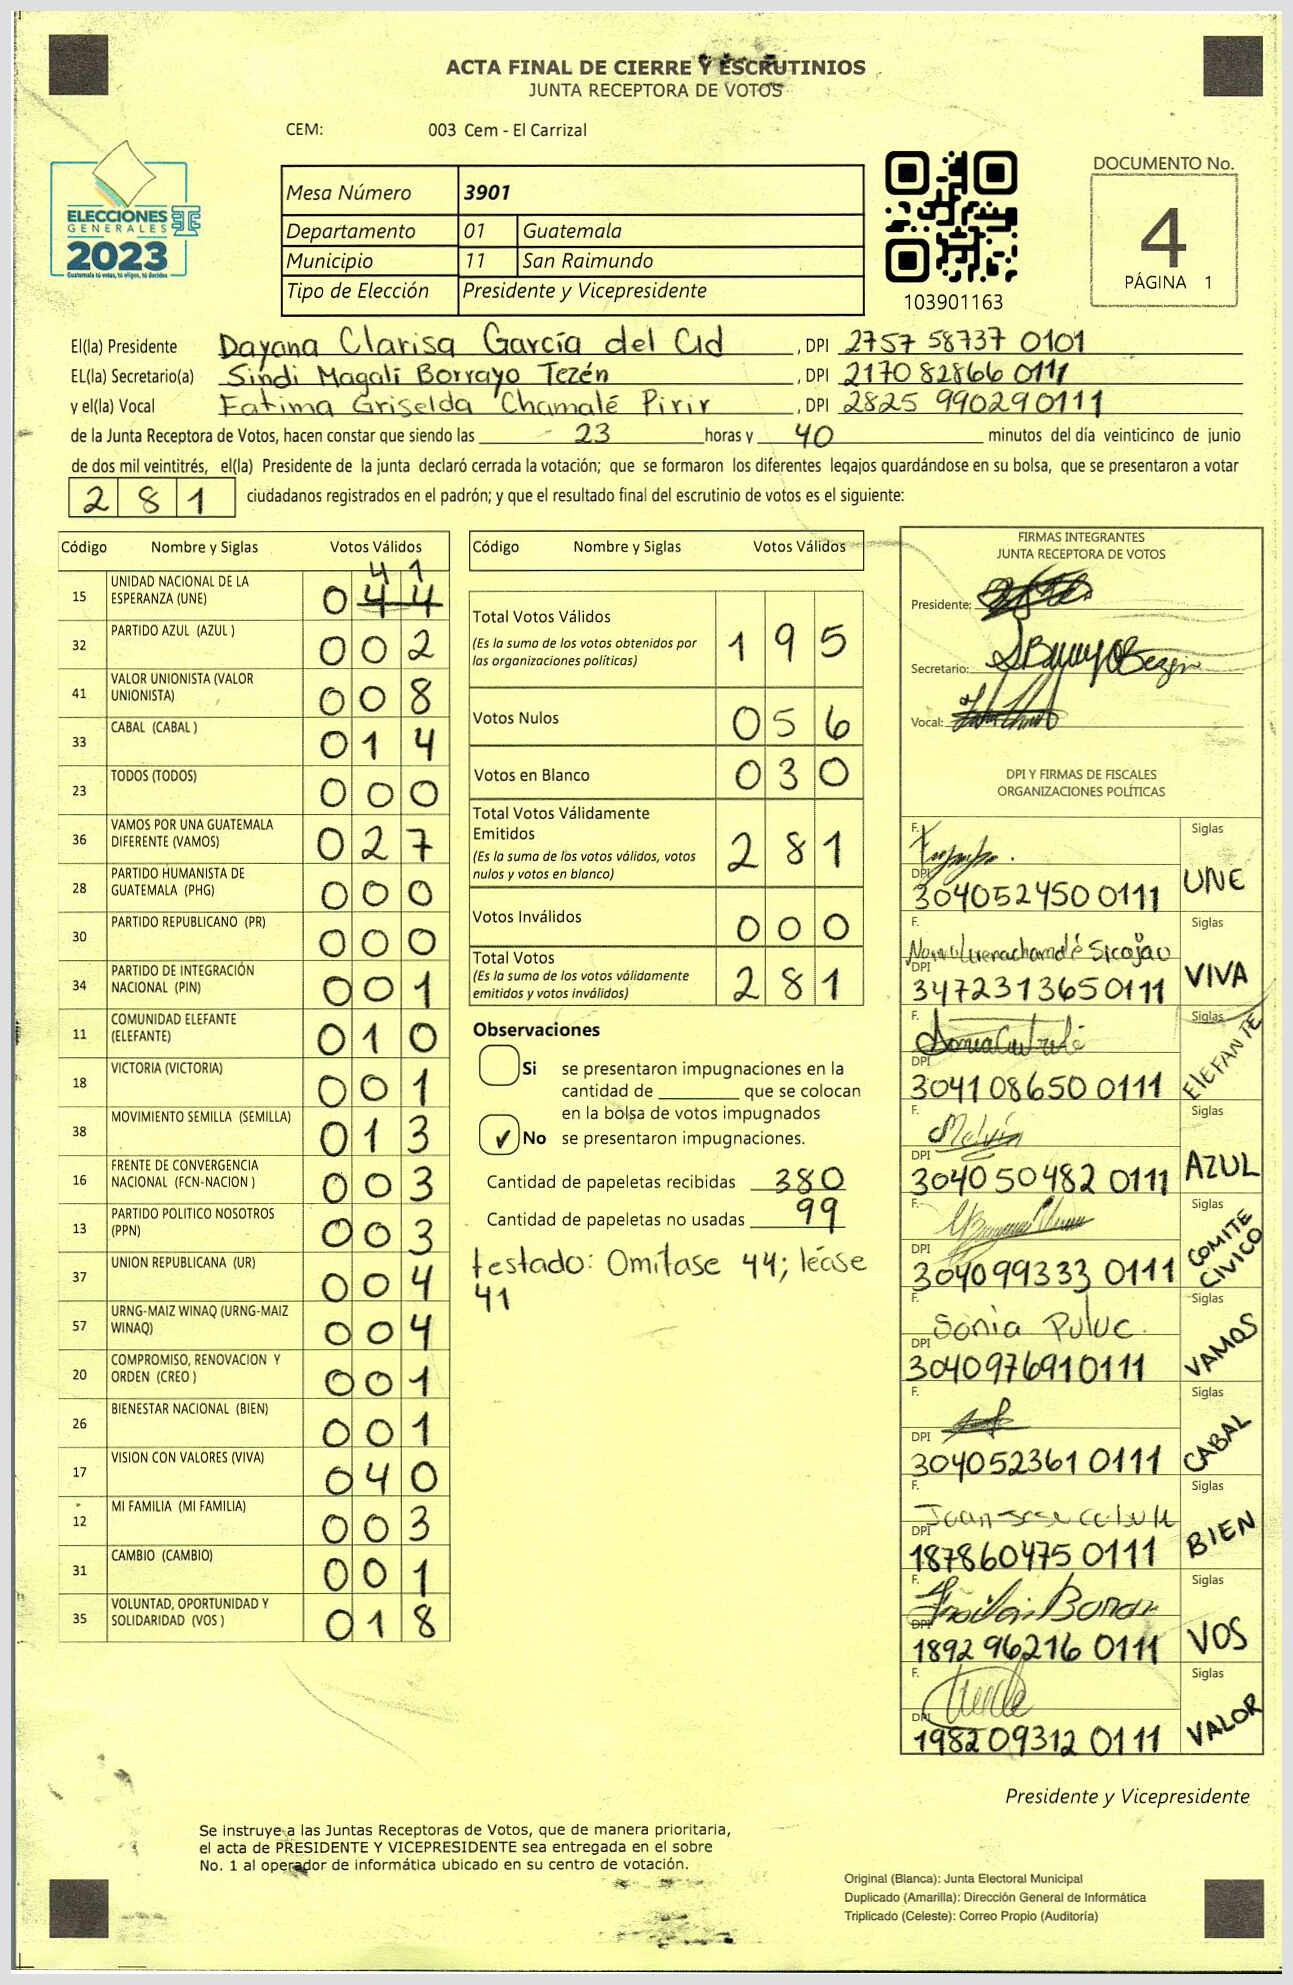 ACTA FINAL DE CIERRE Y ESCRUTINIOS
JUNTA RECEPTORA DE VOTOS
CEM: 003 Cem - El Carrizal
ELECCIONES
GENERALES
2023
Guatemala tú votas, tú eliges, tú decides
Mesa Número 3901
Departamento 01 Guatemala
Municipio 11 San Raimundo
Tipo de Elección Presidente y Vicepresidente
103901163
DOCUMENTO No.
4
PÁGINA 1
El(la) Presidente Dayana Clarisa García del Cid , DPI 2757 58737 0101
EL(la) Secretario(a) Sindi Magali Borrayo Tezén , DPI 2170 82866 0111
y el(la) Vocal Fatima Griselda Chamalé Pirir , DPI 2825 99029 0111
de la Junta Receptora de Votos, hacen constar que siendo las 23 horas y 40 minutos del día veinticinco de junio
de dos mil veintitrés, el(la) Presidente de la junta declaró cerrada la votación; que se formaron los diferentes legajos guardándose en su bolsa, que se presentaron a votar
281 ciudadanos registrados en el padrón; y que el resultado final del escrutinio de votos es el siguiente:
Código Nombre y Siglas Votos Válidos
41
15 UNIDAD NACIONAL DE LA ESPERANZA (UNE) 044
32 PARTIDO AZUL (AZUL ) 002
41 VALOR UNIONISTA (VALOR UNIONISTA) 008
33 CABAL (CABAL ) 014
23 TODOS (TODOS) 000
36 VAMOS POR UNA GUATEMALA DIFERENTE (VAMOS) 027
28 PARTIDO HUMANISTA DE GUATEMALA (PHG) 000
30 PARTIDO REPUBLICANO (PR) 000
34 PARTIDO DE INTEGRACIÓN NACIONAL (PIN) 001
11 COMUNIDAD ELEFANTE (ELEFANTE) 010
18 VICTORIA (VICTORIA) 001
38 MOVIMIENTO SEMILLA (SEMILLA) 013
16 FRENTE DE CONVERGENCIA NACIONAL (FCN-NACION ) 003
13 PARTIDO POLITICO NOSOTROS (PPN) 003
37 UNION REPUBLICANA (UR) 004
57 URNG-MAIZ WINAQ (URNG-MAIZ WINAQ) 004
20 COMPROMISO, RENOVACION Y ORDEN (CREO ) 001
26 BIENESTAR NACIONAL (BIEN) 001
17 VISION CON VALORES (VIVA) 040
12 MI FAMILIA (MI FAMILIA) 003
31 CAMBIO (CAMBIO) 001
35 VOLUNTAD, OPORTUNIDAD Y SOLIDARIDAD (VOS ) 018
Código Nombre y Siglas Votos Válidos
Total Votos Válidos 195
(Es la suma de los votos obtenidos por
las organizaciones políticas)
Votos Nulos 056
Votos en Blanco 030
Total Votos Válidamente
Emitidos 281
(Es la suma de los votos válidos, votos
nulos y votos en blanco)
Votos Inválidos 000
Total Votos 281
(Es la suma de los votos válidamente
emitidos y votos inválidos)
Observaciones
Si se presentaron impugnaciones en la
cantidad de ________ que se colocan
en la bolsa de votos impugnados
✓ No se presentaron impugnaciones.
Cantidad de papeletas recibidas 380
Cantidad de papeletas no usadas 99
testado: Omítase 44; léase
41
FIRMAS INTEGRANTES
JUNTA RECEPTORA DE VOTOS
Presidente:
Secretario:
Vocal:
DPI Y FIRMAS DE FISCALES
ORGANIZACIONES POLÍTICAS
F. Siglas
DPI 304052450 0111 UNE
F. Siglas
DPI 347231365 0111 VIVA
F. Siglas
DPI 304108650 0111 ElEFANTE
F. Melvin Siglas
DPI 304050482 0111 AZUL
F. Siglas
DPI 304099333 0111 COMITE CIVICO
F. Sonia Puluc Siglas
DPI 304097691 0111 VAMOS
F. Siglas
DPI 304052361 0111 CABAL
F. Siglas
DPI 187860475 0111 BIEN
F. Siglas
DPI 1892 96216 0111 VOS
F. Siglas
DPI 1982 09312 0111 VALOR
Presidente y Vicepresidente
Se instruye a las Juntas Receptoras de Votos, que de manera prioritaria,
el acta de PRESIDENTE Y VICEPRESIDENTE sea entregada en el sobre
No. 1 al operador de informática ubicado en su centro de votación.
Original (Blanca): Junta Electoral Municipal
Duplicado (Amarilla): Dirección General de Informática
Triplicado (Celeste): Correo Propio (Auditoría)